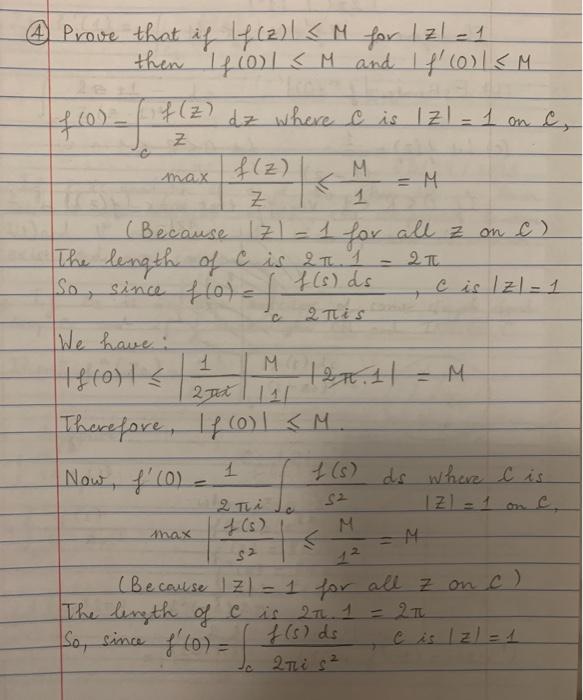 ④ Prove that if |f(z)| ≤ M for |z| = 1
then |f(0)| ≤ M and |f'(0)| ≤ M
f(0) = ∫_C f(z)/z dz where C is |z| = 1 on C,
max |f(z)/z| ≤ M/1 = M
(Because |z| = 1 for all z on C)
The length of C is 2π.1 = 2π
So, since f(0) = ∫_C f(s) ds / 2πis , C is |z| = 1
We have :
|f(0)| ≤ |1/2πi| M/|1| |2π.1| = M
Therefore, |f(0)| ≤ M.
Now, f'(0) = 1/2πi ∫_C f(s)/s² ds where C is
|z| = 1 on C,
max |f(s)/s²| ≤ M/1² = M
(Because |z| = 1 for all z on C)
The length of C is 2π.1 = 2π
So, since f'(0) = ∫_C f(s) ds / 2πi s² , C is |z| = 1